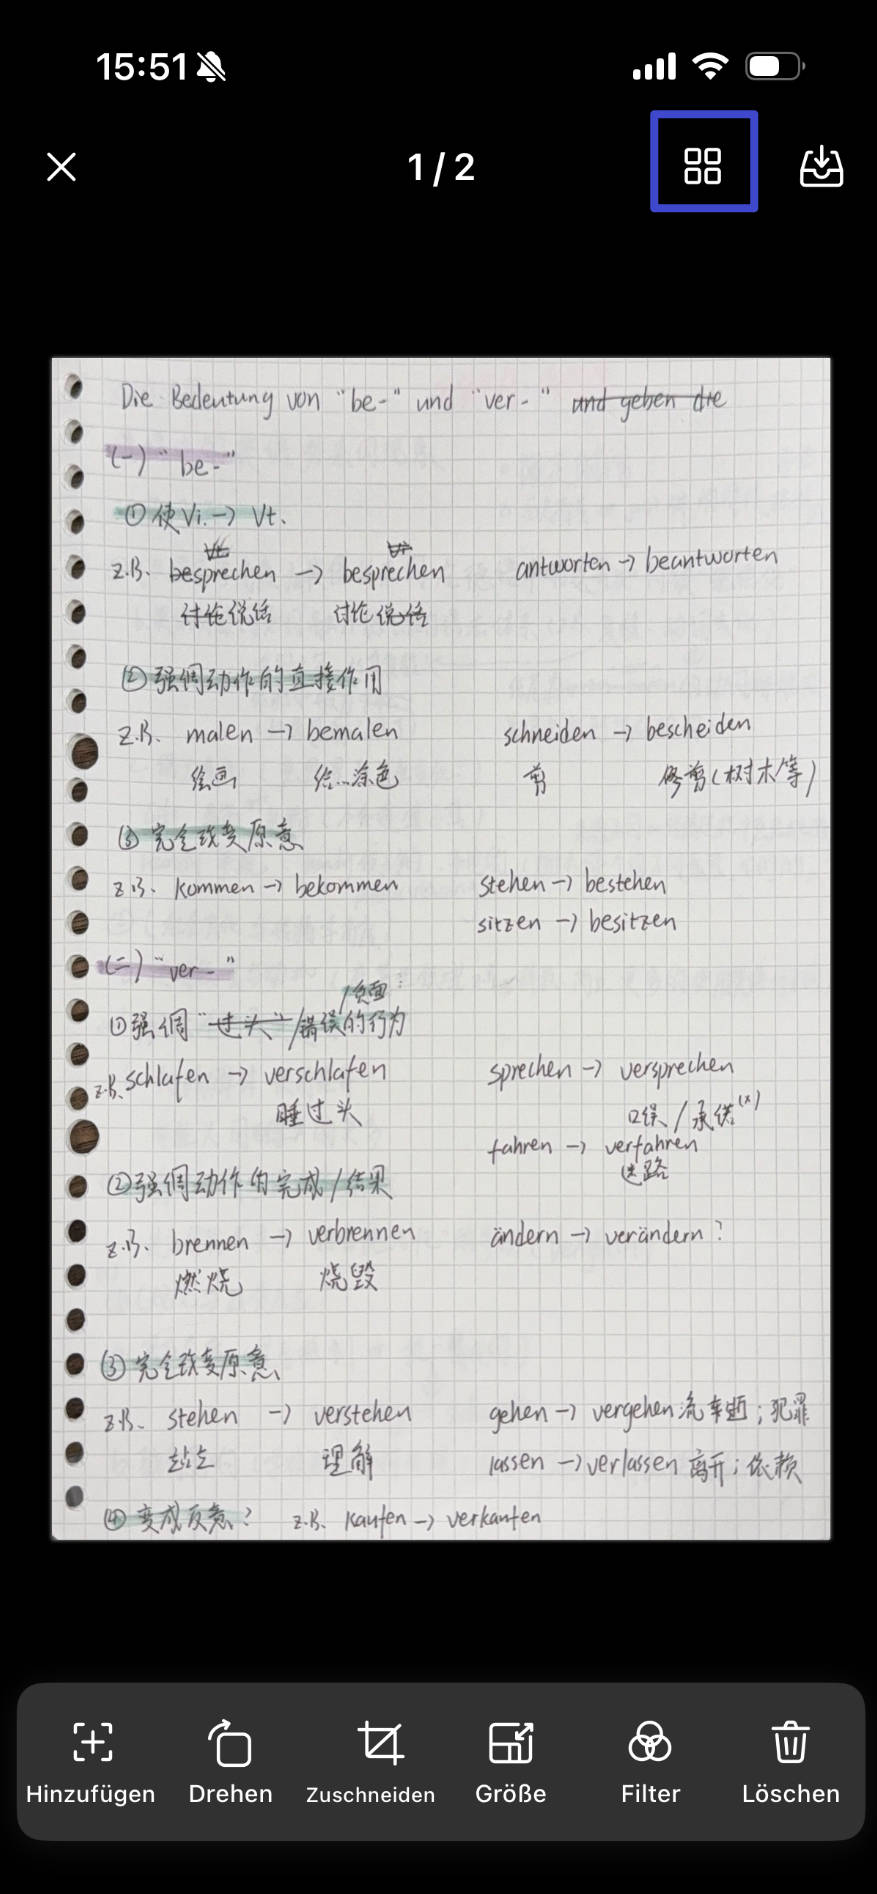 15:51
1 / 2
Die Bedeutung von "be-" und "ver-" und geben die
(一) "be-"
① 使Vi. → Vt.
Vt Vi
z.B. besprechen → besprechen antworten → beantworten
讨论说话 讨论说话
② 强调动作的直接作用
z.B. malen → bemalen schneiden → bescheiden
绘画 给...涂色 剪 修剪(树木等)
③ 完全改变原意
z.B. kommen → bekommen stehen → bestehen
sitzen → besitzen
(二) "ver-"
/负面
① 强调 "过头" /错误的行为
z.B. schlafen → verschlafen sprechen → versprechen
睡过头 口误 / 承诺(x)
fahren → verfahren
迷路
② 强调动作的完成/结果
z.B. brennen → verbrennen ändern → verändern ?
燃烧 烧毁
③ 完全改变原意
z.B. stehen → verstehen gehen → vergehen 流逝 ; 犯罪
站立 理解 lassen → verlassen 离开 ; 依赖
④ 变成反意? z.B. kaufen → verkaufen
Hinzufügen Drehen Zuschneiden Größe Filter Löschen